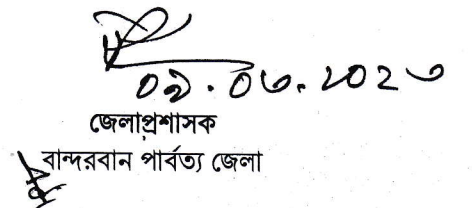 ০৯.০৩.২০২৩
জেলাপ্রশাসক
বান্দরবান পার্বত্য জেলা